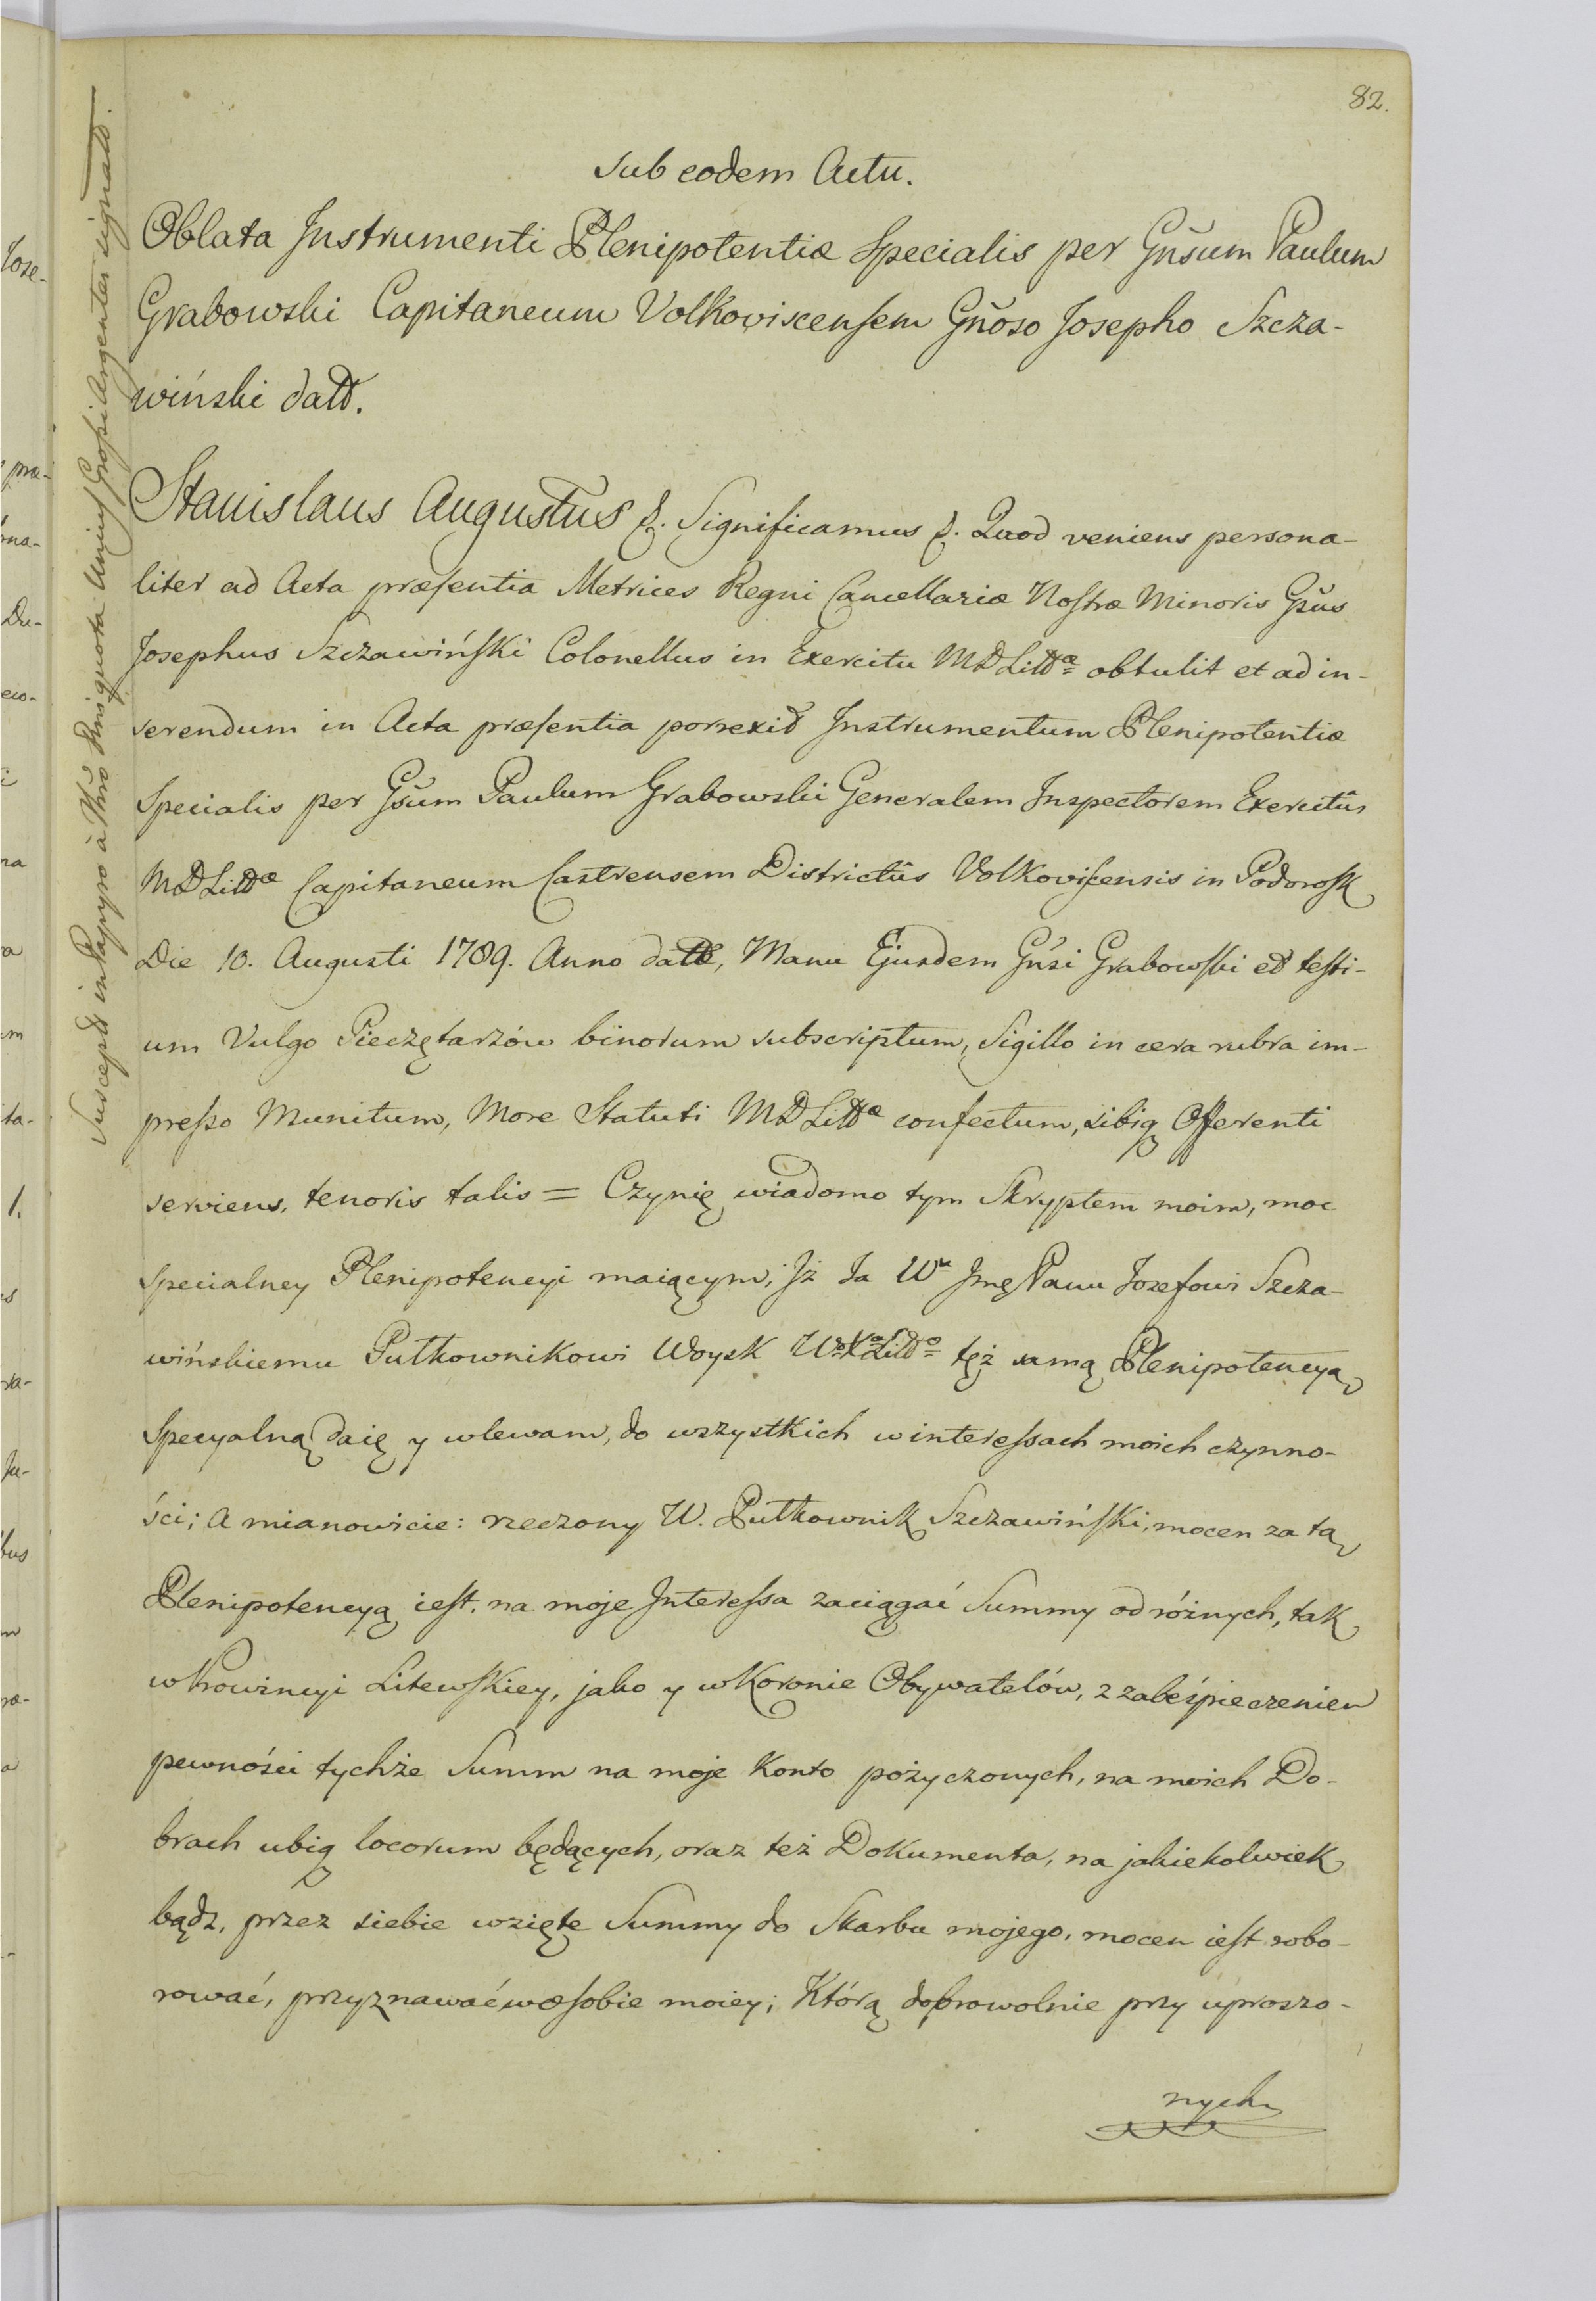 82.
sub eodem Actu.
Oblata Instrumenti Plenipotentiæ Specialis per Gñsum Paulum
Grabowski Capitaneum Volkoviscensem Gñoso Josepho Szcza-
wiński datt.
Stanislaus Augustus &. Significamus &. Quod veniens persona-
liter ad Acta præsentia Metrices Regni Cancellariæ Nostræ Minoris Gsus
Josephus Szczawiński Colonellus in Exercitu MDLittæ obtulit et ad in-
serendum in Acta præsentia porrexit Instrumentum Plenipotentiæ
Specialis per Gsum Paulum Grabowski Generalem Inspectorem Exercitûs
MDLittæ Capitaneum Castrensem Districtûs Volkoviscensis in Podorosk
Die 10. Augusti 1789. Anno datt, Manu Ejusdem Gnsi Grabowski et testi-
um Vulgo Pieczętarzów binorum subscriptum, Sigillo in cera rubra im-
presso Munitum, More Statuti MDLittæ confectum, sibiq Offerenti
serviens, tenoris talis = Czynię wiadomo tym Skryptem moim, moc
Specialney Plenipotencyi maiącym, Iż Ja Wu Jmę Panu Jozefowi Szcza-
wińskiemu Pułkownikowi Woysk WoXaLitto tęż samą Plenipotencyą
Specyalną daię y wlewam, do wszystkich w interessach moich czynno-
ści; a mianowicie: rzeczony W. Pułkownik Szczawiński, mocen za tą
Plenipotencyą iest, na moje Interessa zaciągać Summy od różnych, tak
w Prowincyi Litewskiey, jako y w Koronie Obywatelów, z zabeśpieczeniem
pewności tychże Summ na moje Konto pożyczonych, na moich Do-
brach ubiq locorum będących, oraz też Dokumenta, na jakiekolwiek
bądz, przez siebie wzięte Summy do Skarbu mojego, mocen iest robo-
rować, przyznawać w osobie moiey; Którą dobrowolnie przy uproszo-
nych
Suscept in Papyro à Thro quota Unius Grossi Argentei signatt.